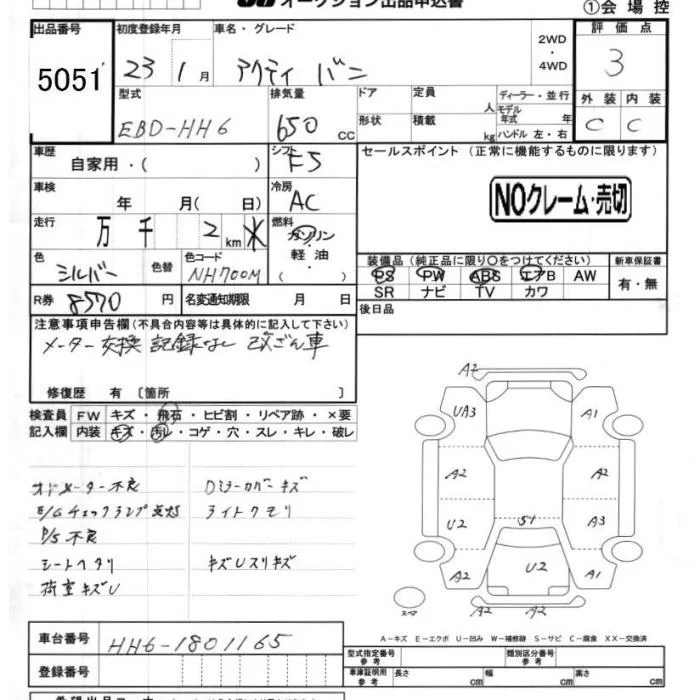 オークション出品申込書
①会場控
出品番号 5051
初度登録年月 23 1月
車名・グレード アクティ バン
2WD・4WD
評価点 3
型式 EBD-HH6
排気量 650 cc
ドア
定員 人
ディーラー・並行
モデル年式 年
外装 C
内装 C
形状
積載 kg
ハンドル 左・右
車歴 自家用・( )
シフト F5
セールスポイント (正常に機能するものに限ります)
NOクレーム・売切
車検 年 月( 日)
冷房 AC
走行 万 千 2 km
燃料 ガソリン・軽油
色 シルバー 色替
色コード NH700M
装備品(純正品に限り○をつけてください)
PS PW ABS エアB AW
SR ナビ TV カワ
新車保証書 有・無
R券 8570 円
名変通知期限 月 日
後日品
注意事項申告欄(不具合内容等は具体的に記入して下さい)
メーター交換 記録なし 改ざん車
修復歴 有 〔箇所 〕
検査員記入欄
FW キズ・飛石・ヒビ割・リペア跡・×要
内装 キズ・汚レ・コゲ・穴・スレ・キレ・破レ
オドメーター不良 Dミラーカバーキズ
E/Gチェックランプ点灯 ライトクモリ
P/S 不良
シートヘタリ キズUスリキズ
荷室キズU
A2
UA3 A1
A2 A2
U2 S1 A3
A2 U2 A1
A2 A2
スペア
A-キズ E-エクボ U-凹み W-補修跡 S-サビ C-腐食 XX-交換済
車台番号 HH6-1801165
登録番号
型式指定番号 参考
類別区分番号 参考
車庫証明用 参考
長さ cm 幅 cm 高さ cm